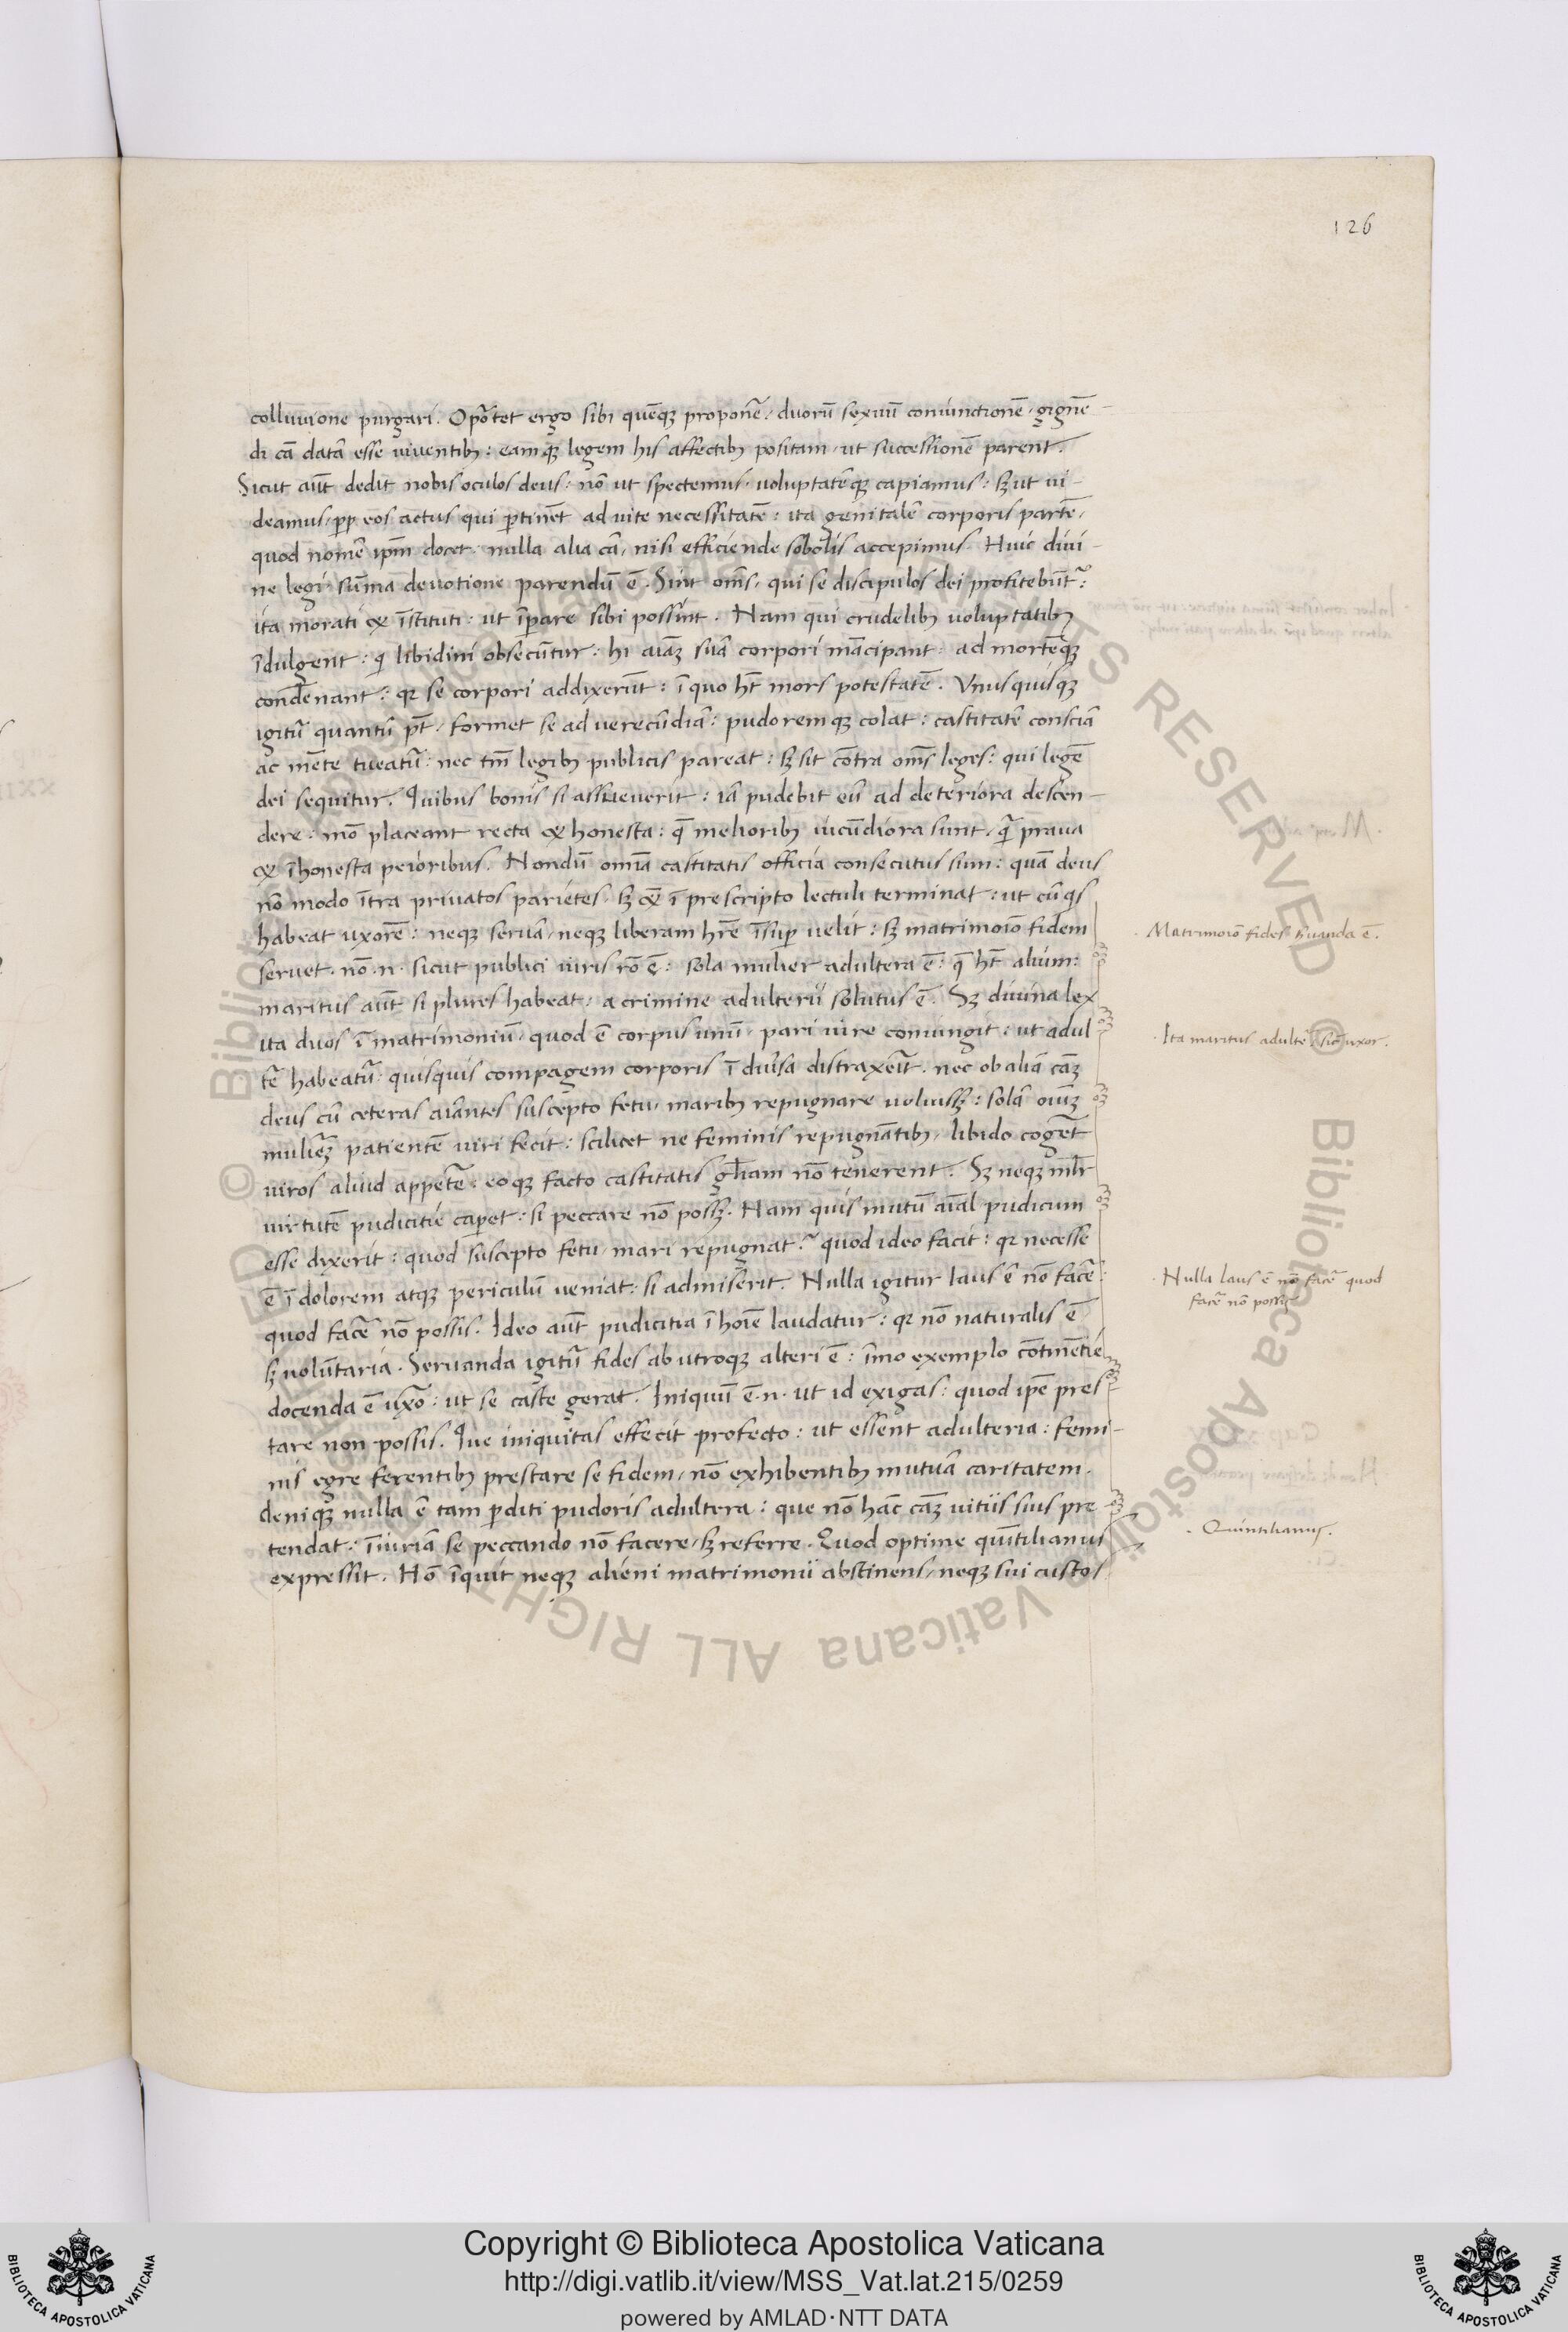 126
colluvione purgari. Oportet ergo sibi quēq; proponē. duorū sexuū coniunctionē gignē-
di cā datā esse viventib;: eamq; legem his affectib; positam, ut successionē parent.
Sicut aūt dedit nobis oculos deus: nō ut spectemus, voluptatēq; capiamus: sꝫ ut vi-
deamus, pp eos actus qui ptinēt ad vite necessitatē: ita genitalē corporis partē,
quod nomē ipm docet: nulla alia cā, nisi efficiende sobolis accepimus. Huic divi-
ne legi sūma devotione parendū ē. Sint oms, qui se discipulos dei profitebūt:
ita morati & īstituti: ut īpare sibi possint. Nam qui crudelib; voluptatib;
īdulgent: q libidini obsecūtur: hi aīaꝫ suā corpori mācipant: ad mortēq;
condēnant: qr se corpori addixerūt: ī quo ht mors potestatē. Unusquisq;
igitū quantū pt, formet se ad verecūdiā: pudoremq; colat: castitatē consciā
ac mēte tueatū: nec tm legib; publicis pareat: sꝫ sit cōtra oms leges: qui legē
dei sequitur. Quibus bonis si assueverit: iā pudebit eū ad deteriora descen-
dere: mō placeant recta & honesta: q̄ meliorib; iucūdiora sunt, q̄ prava
& īhonesta peioribus. Nondū omīa castitatis officia consecutus sum: quā deus
nō modo ītra privatos parietes, sꝫ & ī prescripto lectuli terminat: ut cū qs
habeat uxorē: neq; servā, neq; liberam hrē īsup velit: sꝫ matrimoīo fidem
servet. nō .n. sicut publici iuris rō ē: sola mulier adultera ē: q̄ ht alium:
maritus aūt si plures habeat, a crimine adulterij solutus ē. Sꝫ divina lex
ita duos ī matrimoniū, quod ē corpus unū, pari iure coniungit: ut adul
tē habeatū quisquis compagem corporis ī divsa distraxeīt. nec ob aliā cāꝫ
deus cū ceteras aīantes suscepto fetu, marib; repugnare voluissꝫ: solā oīuꝫ
muliēꝫ patientē viri fecit: scilicet ne feminis repugnātib;, libido cogēt
viros aliud appetē: eoq; facto castitatis glīam nō tenerent. Sꝫ neq; mlr
virtutē pudicitie capet: si peccare nō possꝫ. Nam quis mutū aīal pudicum
esse dixerit: quod suscepto fetu, mari repugnat? quod ideo facit: qr necesse
ē ī dolorem atq; periculū veniat: si admiserit. Nulla igitur laus ē nō facē:
quod facē nō possis. Ideo aūt pudicitia ī hoīe laudatur: qr nō naturalis ē
sꝫ volūtaria. Servanda igitū fides ab utroq; alteri ē: īmo exemplo cōtinētie
docenda ē uxō: ut se caste gerat. Iniquū ē .n. ut id exigas: quod ipē pres-
tare non possis. Que iniquitas effecit profecto: ut essent adulteria: femi-
nis egre ferentib; prestare se fidem, nō exhibentib; mutuā caritatem.
Deniq; nulla ē tam pditi pudoris adultera: que nō hāc cāꝫ vitiis suis pre-
tendat: īiuriā se peccando nō facere, sꝫ referre. Quod optime quītilianus
expressit. Hō īquit neq; alieni matrimonii abstinens, neq; sui custos
Matrimoīo fides svanda ē.
Ita maritus adultē sic uxor.
Nulla laus ē nō facē quod
facē nō possis
Quintilianus.
Copyright © Biblioteca Apostolica Vaticana
http://digi.vatlib.it/view/MSS_Vat.lat.215/0259
powered by AMLAD·NTT DATA
BIBLIOTECA APOSTOLICA VATICANA
BIBLIOTECA APOSTOLICA VATICANA